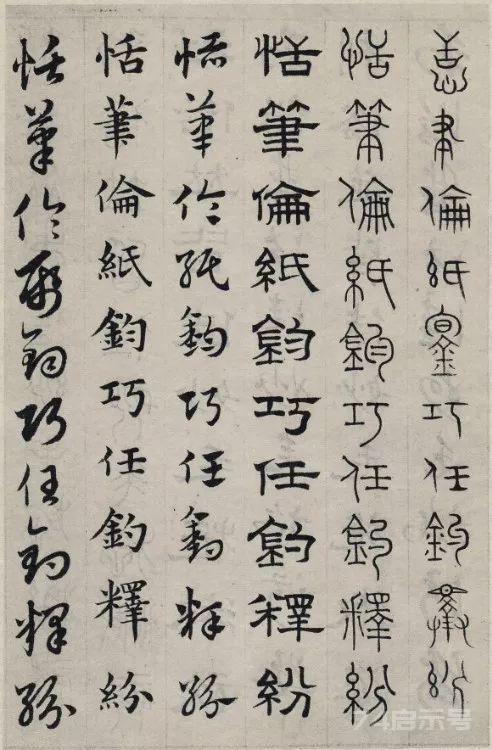 恬筆倫紙鈞巧任釣釋紛
恬筆倫紙鈞巧任釣釋紛
恬筆倫紙鈞巧任釣釋紛
恬筆倫紙鈞巧任釣釋紛
恬筆倫紙鈞巧任釣釋紛
恬筆倫紙鈞巧任釣釋紛
74启示号